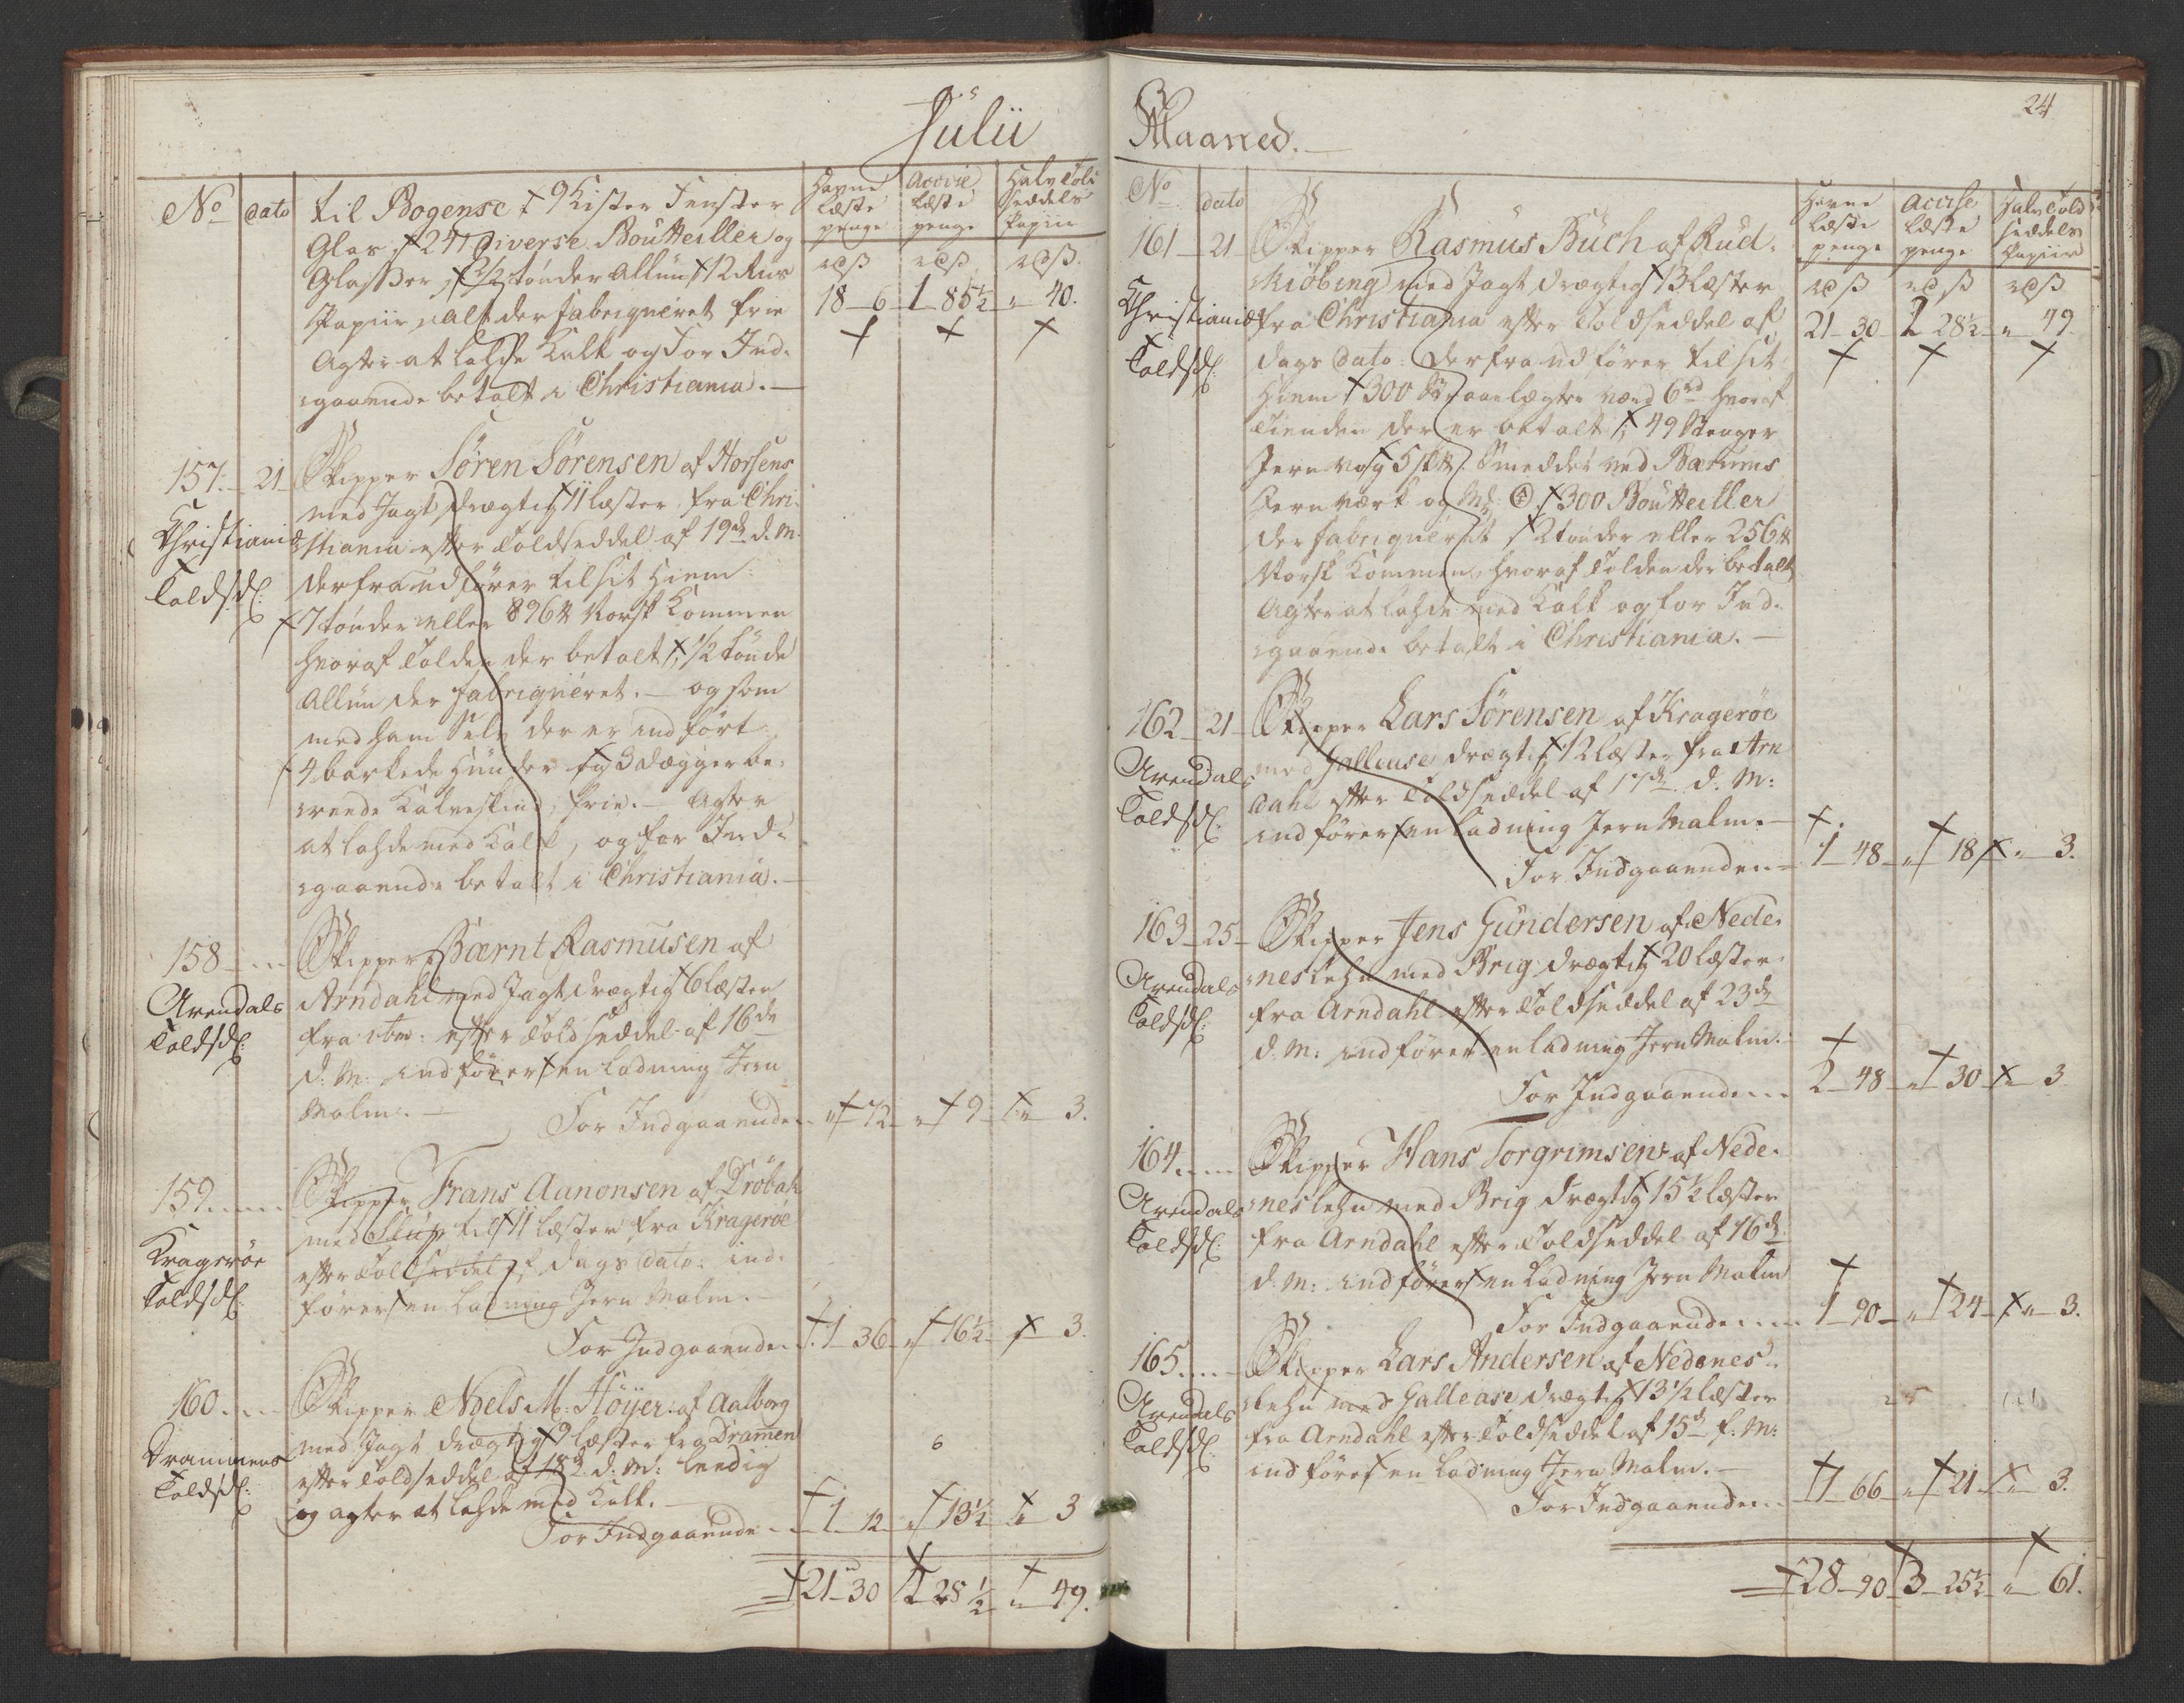 Julii
No
dato
Havne
læste
penge
Accise
læste
penge
Halv Told
Seddels
Papiir
til Bogense 9 Kister Fenster
Glas, 247 diverse Boutteiller og
Glasser, 2 1/2 tønder Allun, 12 Riis
Papiir, alt der fabriqueret frie
Agter at lahde Kalk og For Ind-
gaaende betalt i Christiania.
rdß rdß rdß
18 6 1 85½ „ 40.
157. 21
Christianiæ
Toldsdl:
Skipper Sören Sörensen af Horsens
med Jagt drægtig 11 læster fra Chri-
stiania efter Toldseddel af 19de d. M.
derfra udfører til sit Hiem
7 tønder eller 896 ℔ Norsk Kommen
hvoraf Tolden der betalt, 1/2 tønde
Allun der fabriqueret. — og som
med ham selv der er indført
4 barkede Huuder og 3 Dægger be-
reede Kalveskind, frie. — Agter
at lahde med Kalk, og for Ind-
gaaende betalt i Christiania. —
158
Arendals
Toldsdl:
Skipper Bærnt Rasmusen af
Arndahl med Jagt drægtig 6 læster
fra ibm: efter Toldseddel af 16de
d. M. indfører en ladning Jern
Malm. —
For Indgaaende „ 72 „ 9 „ 3.
159
Kragerøe
Toldsdl:
Skipper Frans Aanonsen af Dröbak
med Slup til 11 læster fra Krageröe
efter Toldseddel af dags dato: ind-
fører en ladning Jern Malm. —
For Indgaaende 1 36 „ 16½ „ 3.
160
Drammens
Toldsdl:
Skipper Niels M: Höyer af Aalborg
med Jagt drægtig 9 læster fra Dramen
efter Toldseddel af 18de d. M: leedig
og agter at lahde med Kalk. —
For Indgaaende 1 12 „ 13½ „ 3
6
21 30 2 28½ „ 49.
Maaned.
24
No
dato
Havne
læste
penge
Accise
læste
penge
Halv Told
Seddels
Papiir
161 21
Christianiæ
Toldsdl:
Skipper Rasmus Buch af Rud-
kiöbing med Jagt drægtig 13 læster
fra Christiania efter Toldseddel af
dags dato: derfra udfører til sit
Hiem 300 Gran lægter værd 6 rd hvoraf
Tienden der er betalt, 49 Stenger
Jern vog 5 sk℔ Smeddet ved Bærums
Jernværk og 300 Boutteiller
der fabriqueret 2 tønder eller 256 ℔
Norsk Kommen, hvoraf Tolden der betalt
Agter at lahde med Kalk og for Ind-
gaaende betalt i Christiania. —
rdß rdß rdß
21 30 2 28½ „ 49.
162 21
Arendals
Toldsdl:
Skipper Lars Sörensen af Krageröe
med Galleuse drægtig 12 læster fra Arn
dahl efter Toldseddel af 17de d: M:
indfører en ladning Jern Malm. —
For Indgaaende 1 48 „ 18 „ 3.
163 25
Arendals
Toldsdl:
Skipper Jens Gundersen af Nede-
neslehn med Brig drægtig 20 læster
fra Arndahl efter Toldseddel af 23de
d. M: indfører en ladning Jern Malm.
For Indgaaende 2 48 „ 30 „ 3
164
Arendals
Toldsdl:
Skipper Hans Torgrimsen af Nede-
neslehn med Brig drægtig 15½ læster
fra Arndahl efter Toldseddel af 16de
d. M: indfører en Ladning Jern Malm
For Indgaaende 1 90 „ 24 „ 3.
165
Arendals
Toldsdl:
Skipper Lars Andersen af Nedenes-
lehn med Gallease drægtig 13 1/2 læster
fra Arndahl efter Toldseddel af 15de f: M:
indføret en ladning Jern Malm. —
For Indgaaende 1 66 „ 21 „ 3.
28 90 3 25½ „ 61.